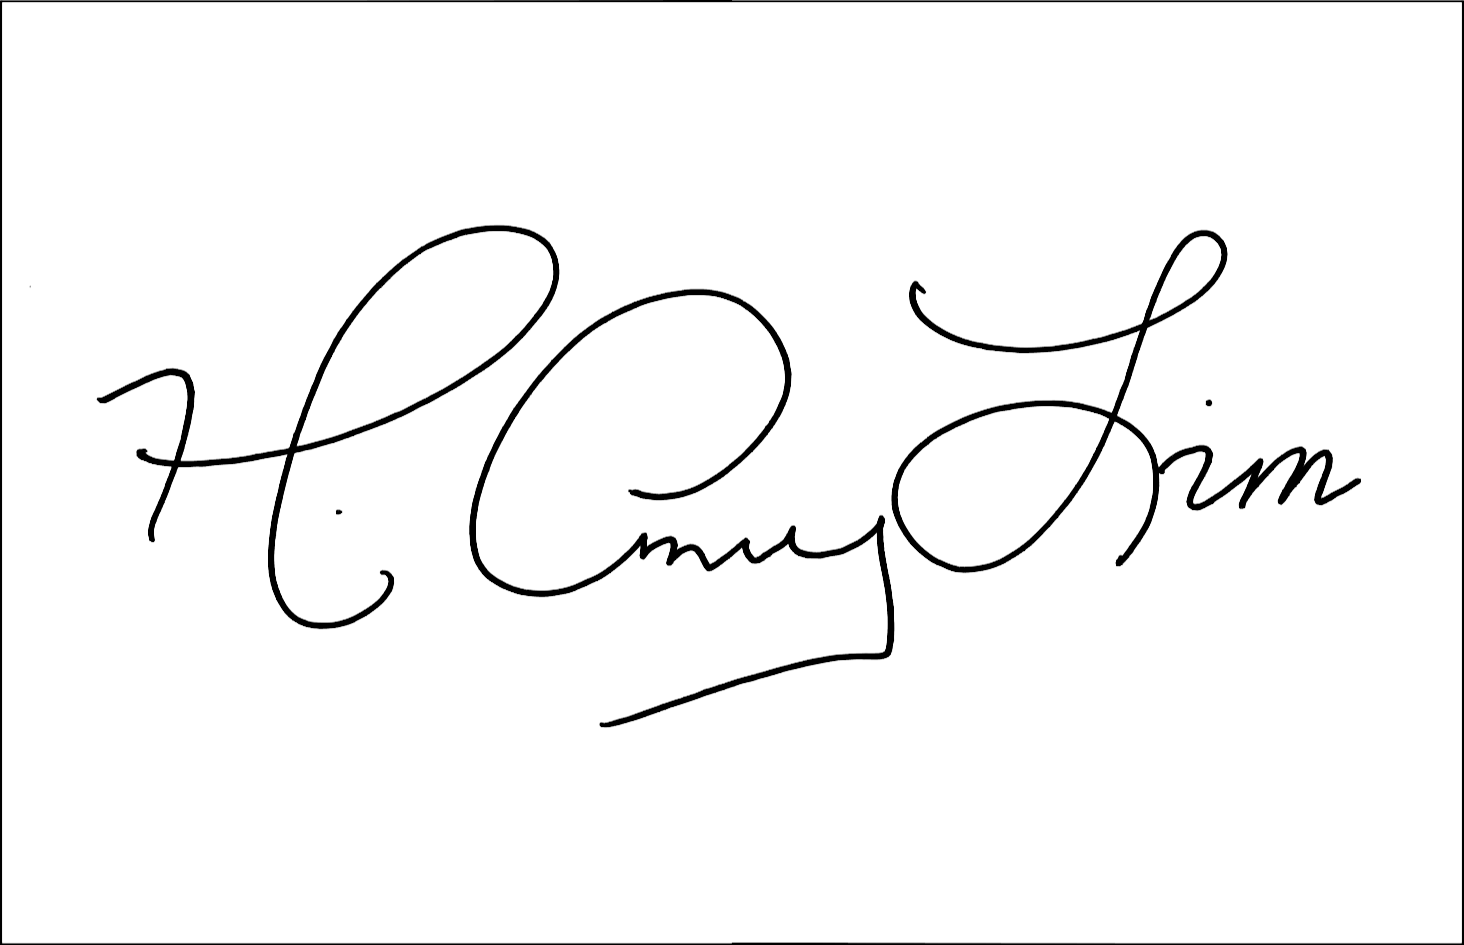 H. Amy Lim